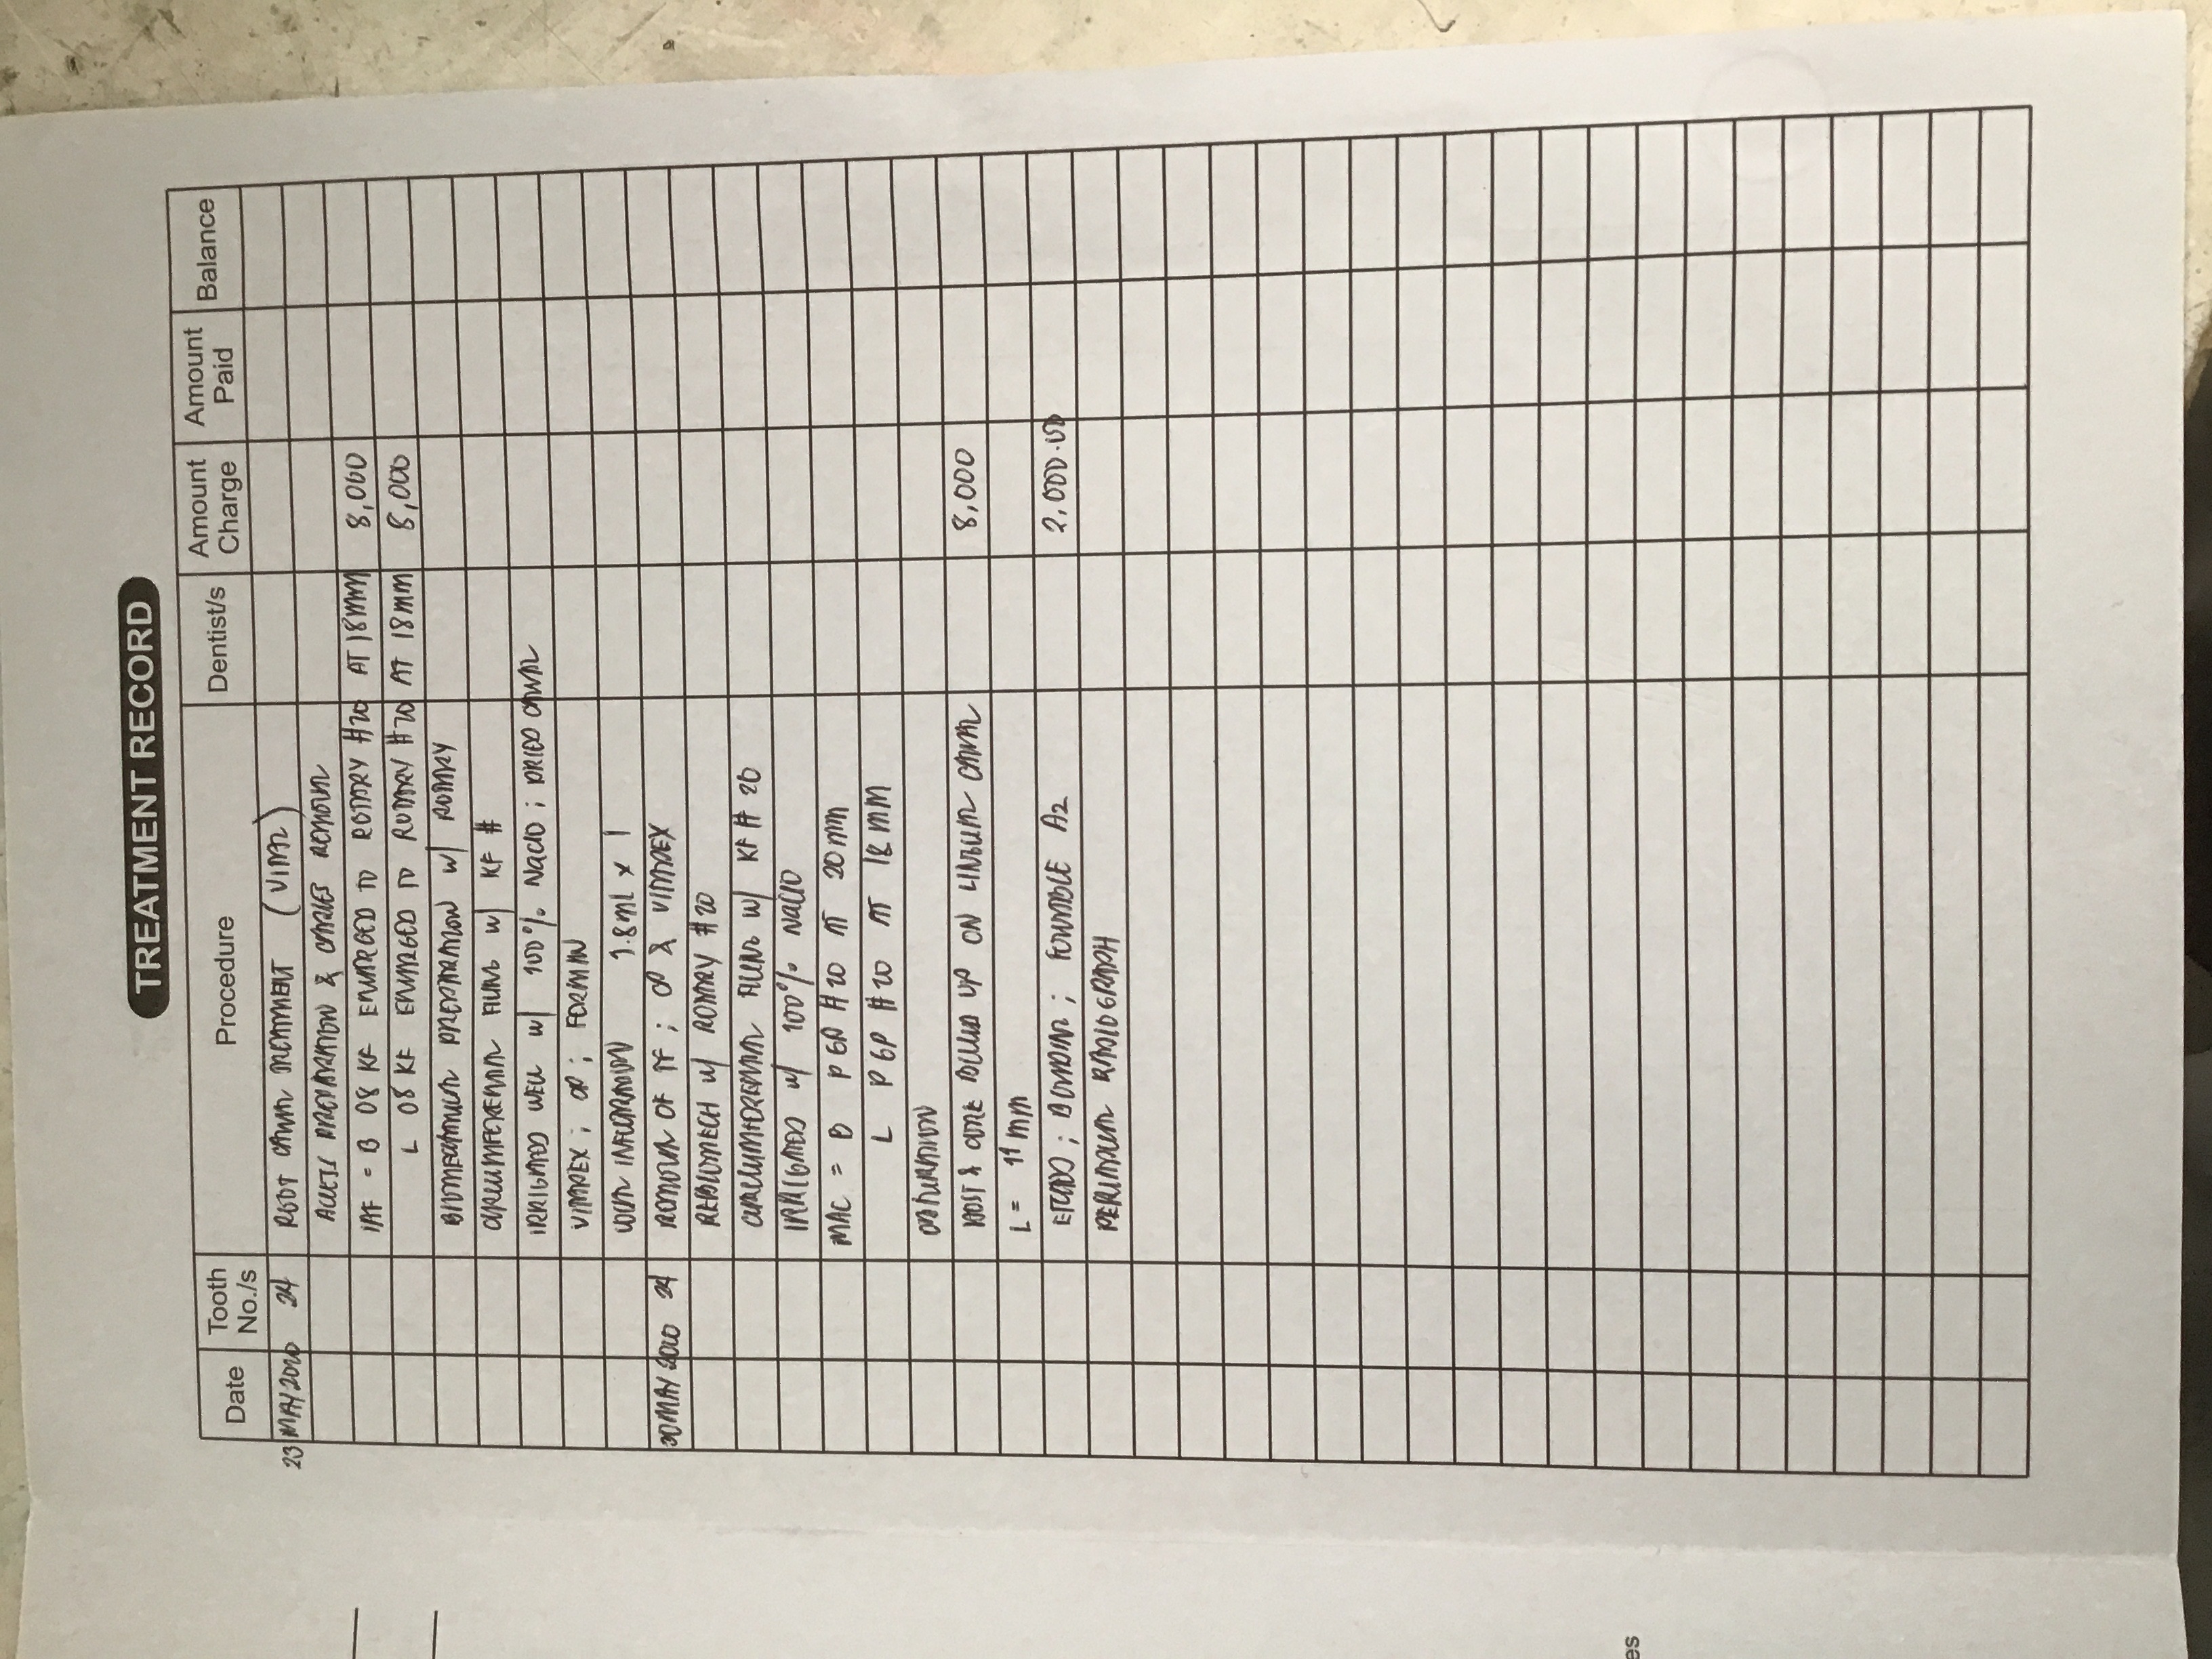 TREATMENT RECORD
Date Tooth No./s Procedure Dentist/s Amount Charge Amount Paid Balance
23 MAY 2020 24 ROOT CANAL TREATMENT (VITAL)
ACCESS PREPARATION & CARIES REMOVAL
IAF = B 08 KF ENLARGED TO ROTARY #20 AT 18MM 8,000
L 08 KF ENLARGED TO ROTARY #20 AT 18MM 8,000
BIOMECHANICAL PREPARATION W/ ROTARY
CIRCUMFERENTIAL FILING W/ KF #
IRRIGATED WELL W/ 100% NaClO ; DRIED CANAL
VITAPEX ; CP ; FORMALIN
LOCAL INFILTRATION 1.8ML x 1
30 MAY 2020 24 REMOVAL OF TF ; CP & VITAPEX
REBIOMECH W/ ROTARY #20
CIRCUMFERENTIAL FILING W/ KF # 20
IRRIGATED W/ 100% NaClO
MAC = B P GP #20 AT 20MM
L P GP #20 AT 18MM
OBTURATION
POST & CORE BUILD UP ON LINGUAL CANAL 8,000
L = 11MM
ETCHED ; BONDING ; FLOWABLE A2 2,000.00
PERIAPICAL RADIOGRAPH
es